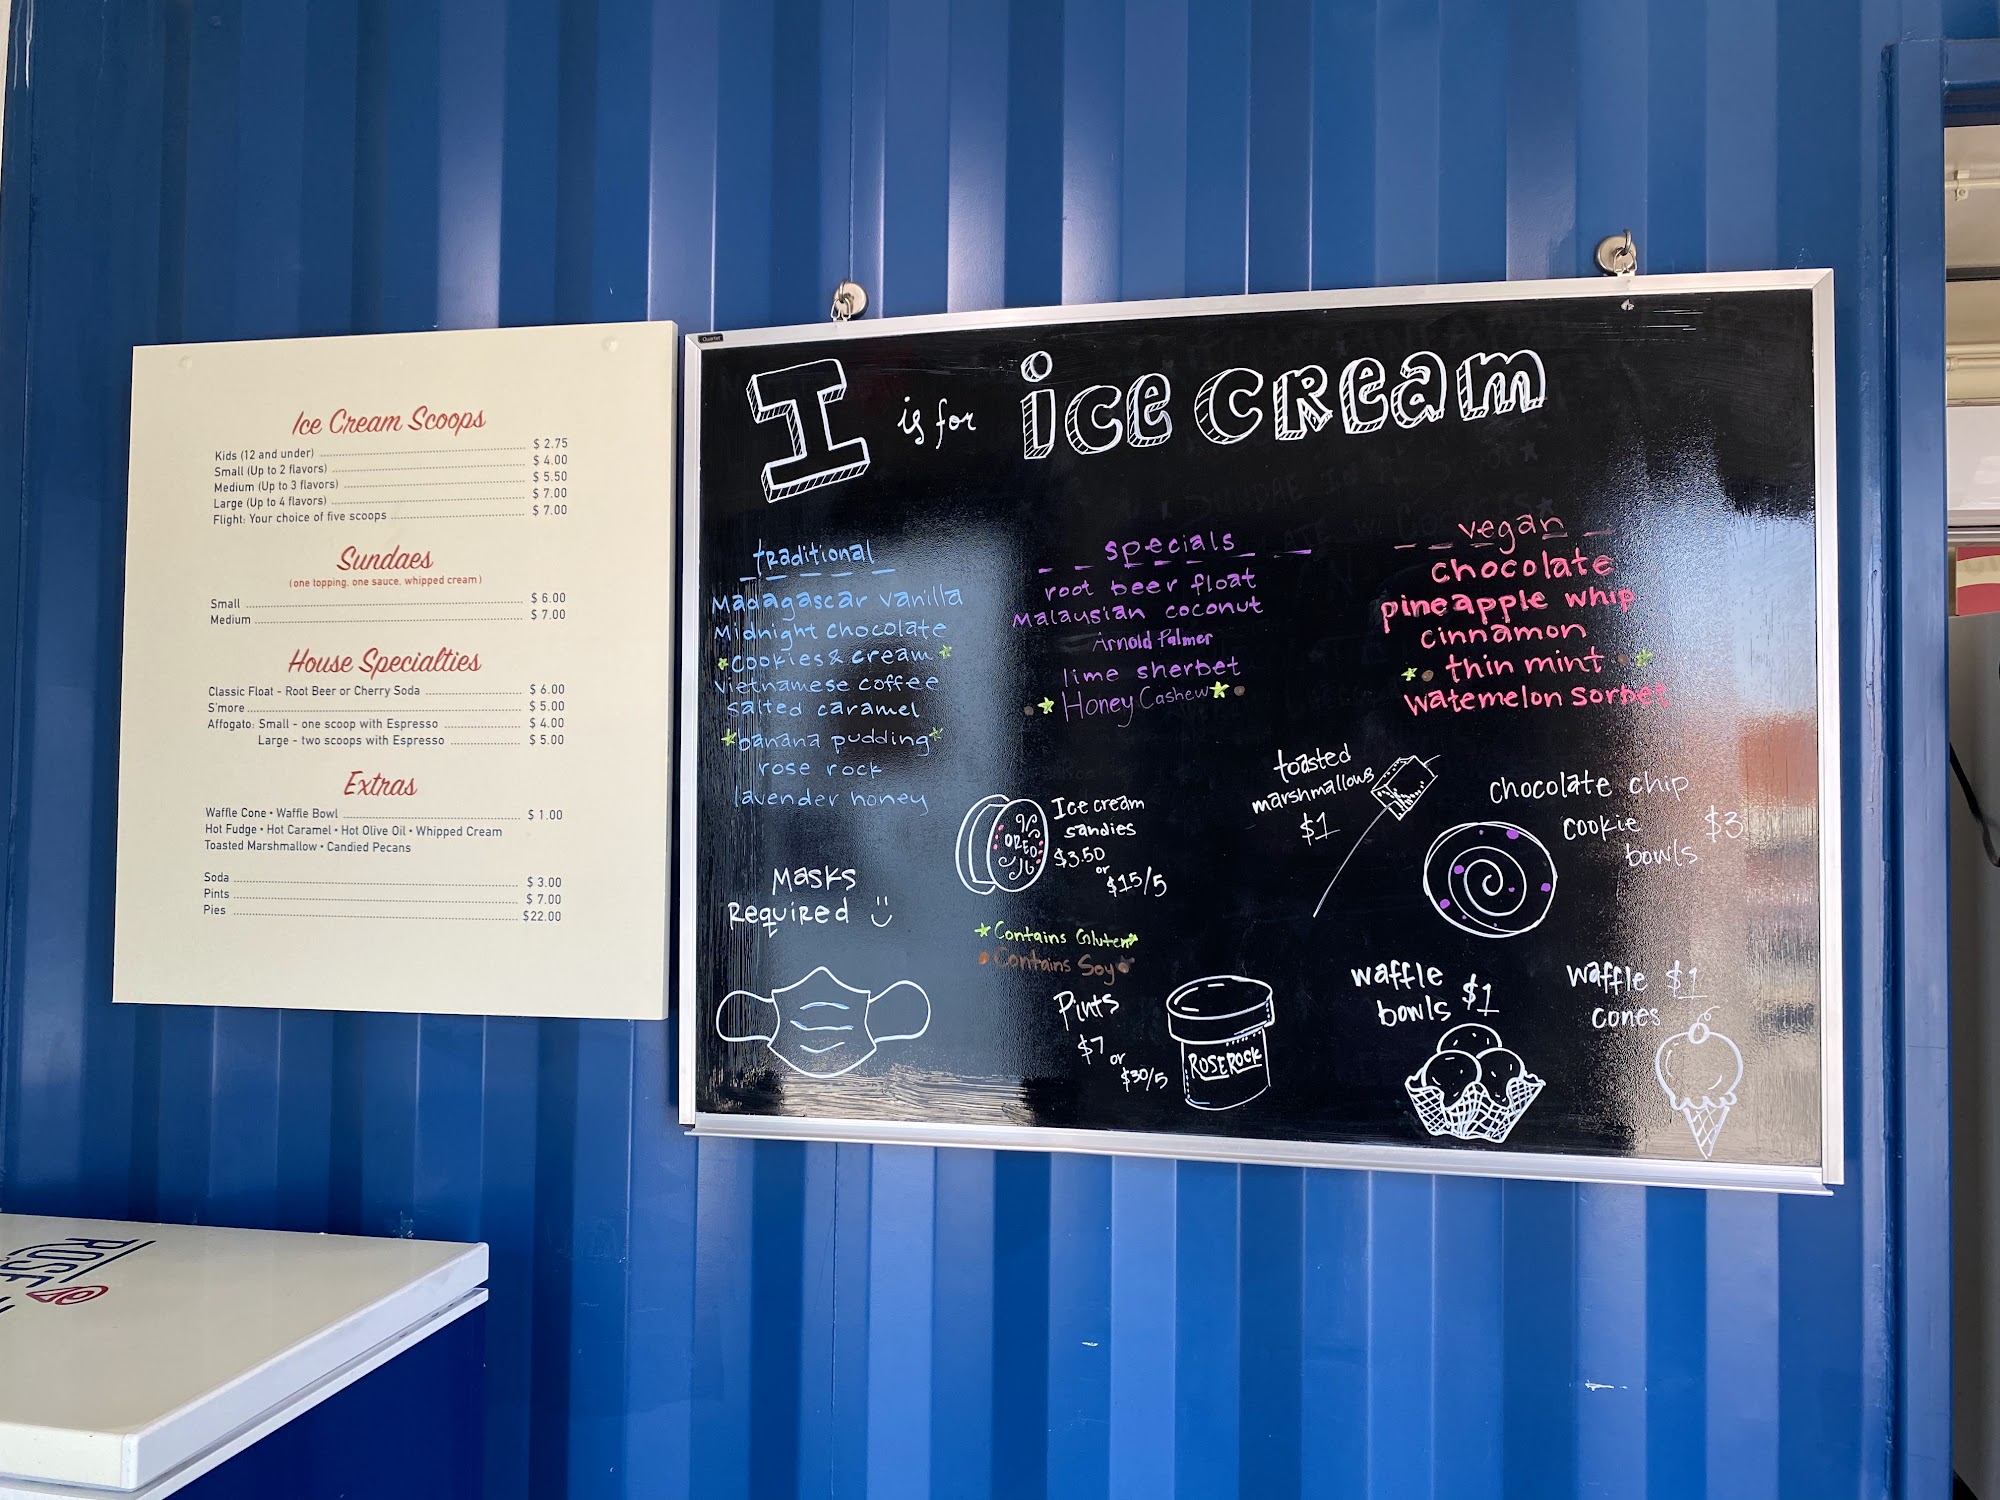 Ice Cream Scoops
Kids (12 and under) $ 2.75
Small (Up to 2 flavors) $ 4.00
Medium (Up to 3 flavors) $ 5.50
Large (Up to 4 flavors) $ 7.00
Flight: Your choice of five scoops $ 7.00
Sundaes
(one topping, one sauce, whipped cream)
Small $ 6.00
Medium $ 7.00
House Specialties
Classic Float - Root Beer or Cherry Soda $ 6.00
S'more $ 5.00
Affogato: Small - one scoop with Espresso $ 4.00
Large - two scoops with Espresso $ 5.00
Extras
Waffle Cone • Waffle Bowl $ 1.00
Hot Fudge • Hot Caramel • Hot Olive Oil • Whipped Cream
Toasted Marshmallow • Candied Pecans
Soda $ 3.00
Pints $ 7.00
Pies $22.00
Quartet
I is for ice cream
traditional
Madagascar vanilla
Midnight chocolate
cookies & cream
vietnamese coffee
salted caramel
banana pudding
rose rock
lavender honey
Masks
Required
specials
root beer float
Malaysian coconut
Arnold Palmer
lime sherbet
Honey Cashew
vegan
chocolate
pineapple whip
cinnamon
thin mint
watemelon sorbet
OREO
Ice cream
sandies
$3.50
or
$15/5
Contains Gluten
Contains Soy
toasted
marshmallows
$1
chocolate chip
cookie $3
bowls
Pints
$7
or
$30/5
ROSE ROCK
waffle
bowls $1
waffle $1
cones
ROSE